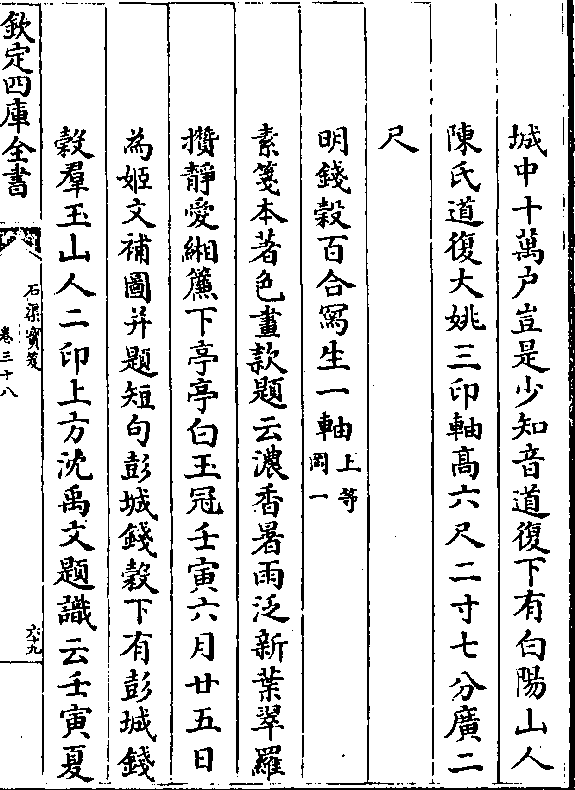 城中十萬户豈是少知音道復下有白陽山人
陳氏道復大姚三印軸髙六尺二寸七分廣二
尺
明錢榖百合寫生一軸上等
岡一
素箋本著色畫款題云濃香暑雨泛新葉翠羅
攢靜愛緗簾下亭亭白玉冠壬寅六月廿五日
為姬文補圖并題短句彭城錢榖下有彭城錢
榖羣玉山人二印上方沈禹文題識云壬寅夏
欽定四庫全書
石渠寳笈
卷三十八
六十九